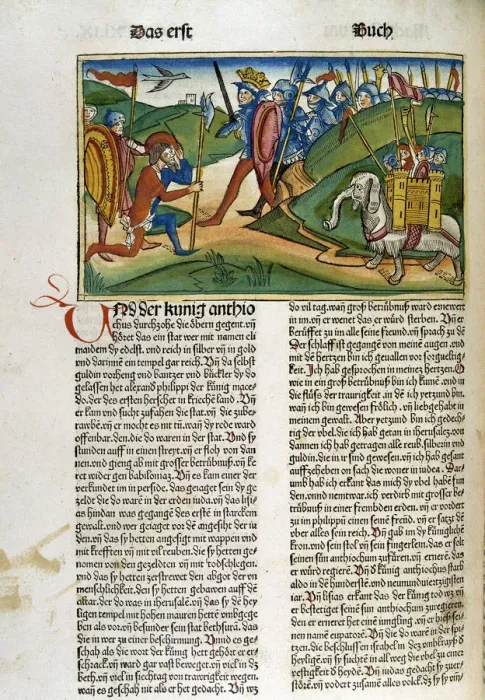 Das erst Buch
Vnd der kunig anthio
chus durchzohe die öbern gegent. vñ
höret das ein stat wer mit namen eli
maidem dy edelst. vnd reich in silber vñ in gold
vnd darinnē ein tempel gar reich. Vñ da selbst
guldin vorheng vnd bantzer vnd bückler dy do
gelassen het alexand philippi der künig mace
do. der des ersten herschet in kriechē land. Vñ
er kam vnd sucht zufahen die stat. vñ die zube
rawbē. vñ er mocht es nit tů. wañ dy rede ward
offenbar. den. die do waren in der stat. Vnd sy
stunden auff in einen streyt. vñ er floh von dan
nen. vnd gieng ab mit grosser betrübnuß. vñ ke
ret wider gen babilonia. Vñ es kam einer der
verkundet im in perside. das geiaget sein dy ge
zeldt die do warē in der erden iuda. vñ das lisi
as hindan was gegangen des erstē in starckem
gewalt. vnd wer geiaget vor dē angesiht der iu
den. vñ das sy hetten angesigt mit wappen vnd
mit krefften vñ mit vil reuben. die sy hetten ge
nomen von den gezeldten. vñ mit todschlegen.
vnd das sy hetten zerstrewet den abgot der vn
menschlichkeit. den sy hetten gebawen auff dē
altar. der do was in iherusalē. vñ das sy dē hey
ligen tempel mit hohen mauren hettē vmbgege
ben als vor. vñ besunder sein stat bethsura. das
die in wer zu einer beschirmung. Vnnd es ge
schah als die wort der künig hett gehört er er
schrack. vñ ward gar vast beweget. vñ viel in dz
beth. vñ viel in siechtag von trawrigkeit wegen.
wañ es geschah nit als er het gedacht. Vñ wz
do vil tag. wañ groß betrübnuß ward ernewert
in im. vñ er wenet das er würd sterben. Vñ er
berüffet zu im alle seine freund. vñ sprach zu dē
Der schlaff ist gegangē von meinē augen. vnd
mit dē hertzen bin ich geuallen vor sorgueltig
keit. Ich hab gesprochen in meinez hertzen. O
wie in ein groß betrübnuß bin ich kumē. vnd in
die flüss der traurigkeit. in dē ich yetzund bin.
wañ ich bin gewesen frölich. vñ liebgehabt in
meinem gewalt. Aber yetzund bin ich gedech
tig der vbel. die ich hab getan in iherusalē. von
dannen ich hab getragen alle reub. silberin vnd
guldin. die in ir sind gewesen. vñ ich hab gesant
auffzeheben on sach die woner in iudea. Dar
umb hab ich erkant das mich dy vbel habē fun
den. vnnd nemt war. ich verdirb mit grosser be
trübnuß in einer frembden erden. vñ er vordert
zu im philippū einen seinē freūd. vñ er satzt dē
vber alles sein reich. Vñ gab im dy künigliche
kron. vnd sein stol vñ sein fingerlein. das er solt
seinen sun anthiochum zufüren. vñ ernerē. das
er würd regierē. Vñ dē künig anthiochus starb
aldo in dē hunderstē. vnd neunundviertzigsten
iar. Vñ lisias erkant das der künig tod wz. vñ
er bestetiget seinē sun anthiochum zuregieren.
den er erneret het einē iungling. vñ er hieß sei
nen namē eupatorē. Vñ die do warē in der spi
tzen. die beschlussen israhel in dez vmbkrayß dē
heyligē. vñ sy suchtē in all weg die vbel zu einer
vestigkeit dē heydē. Vñ iudas gedacht sy zuer
störē. vñ vodert zusamē alles volck. dz sy sy vm